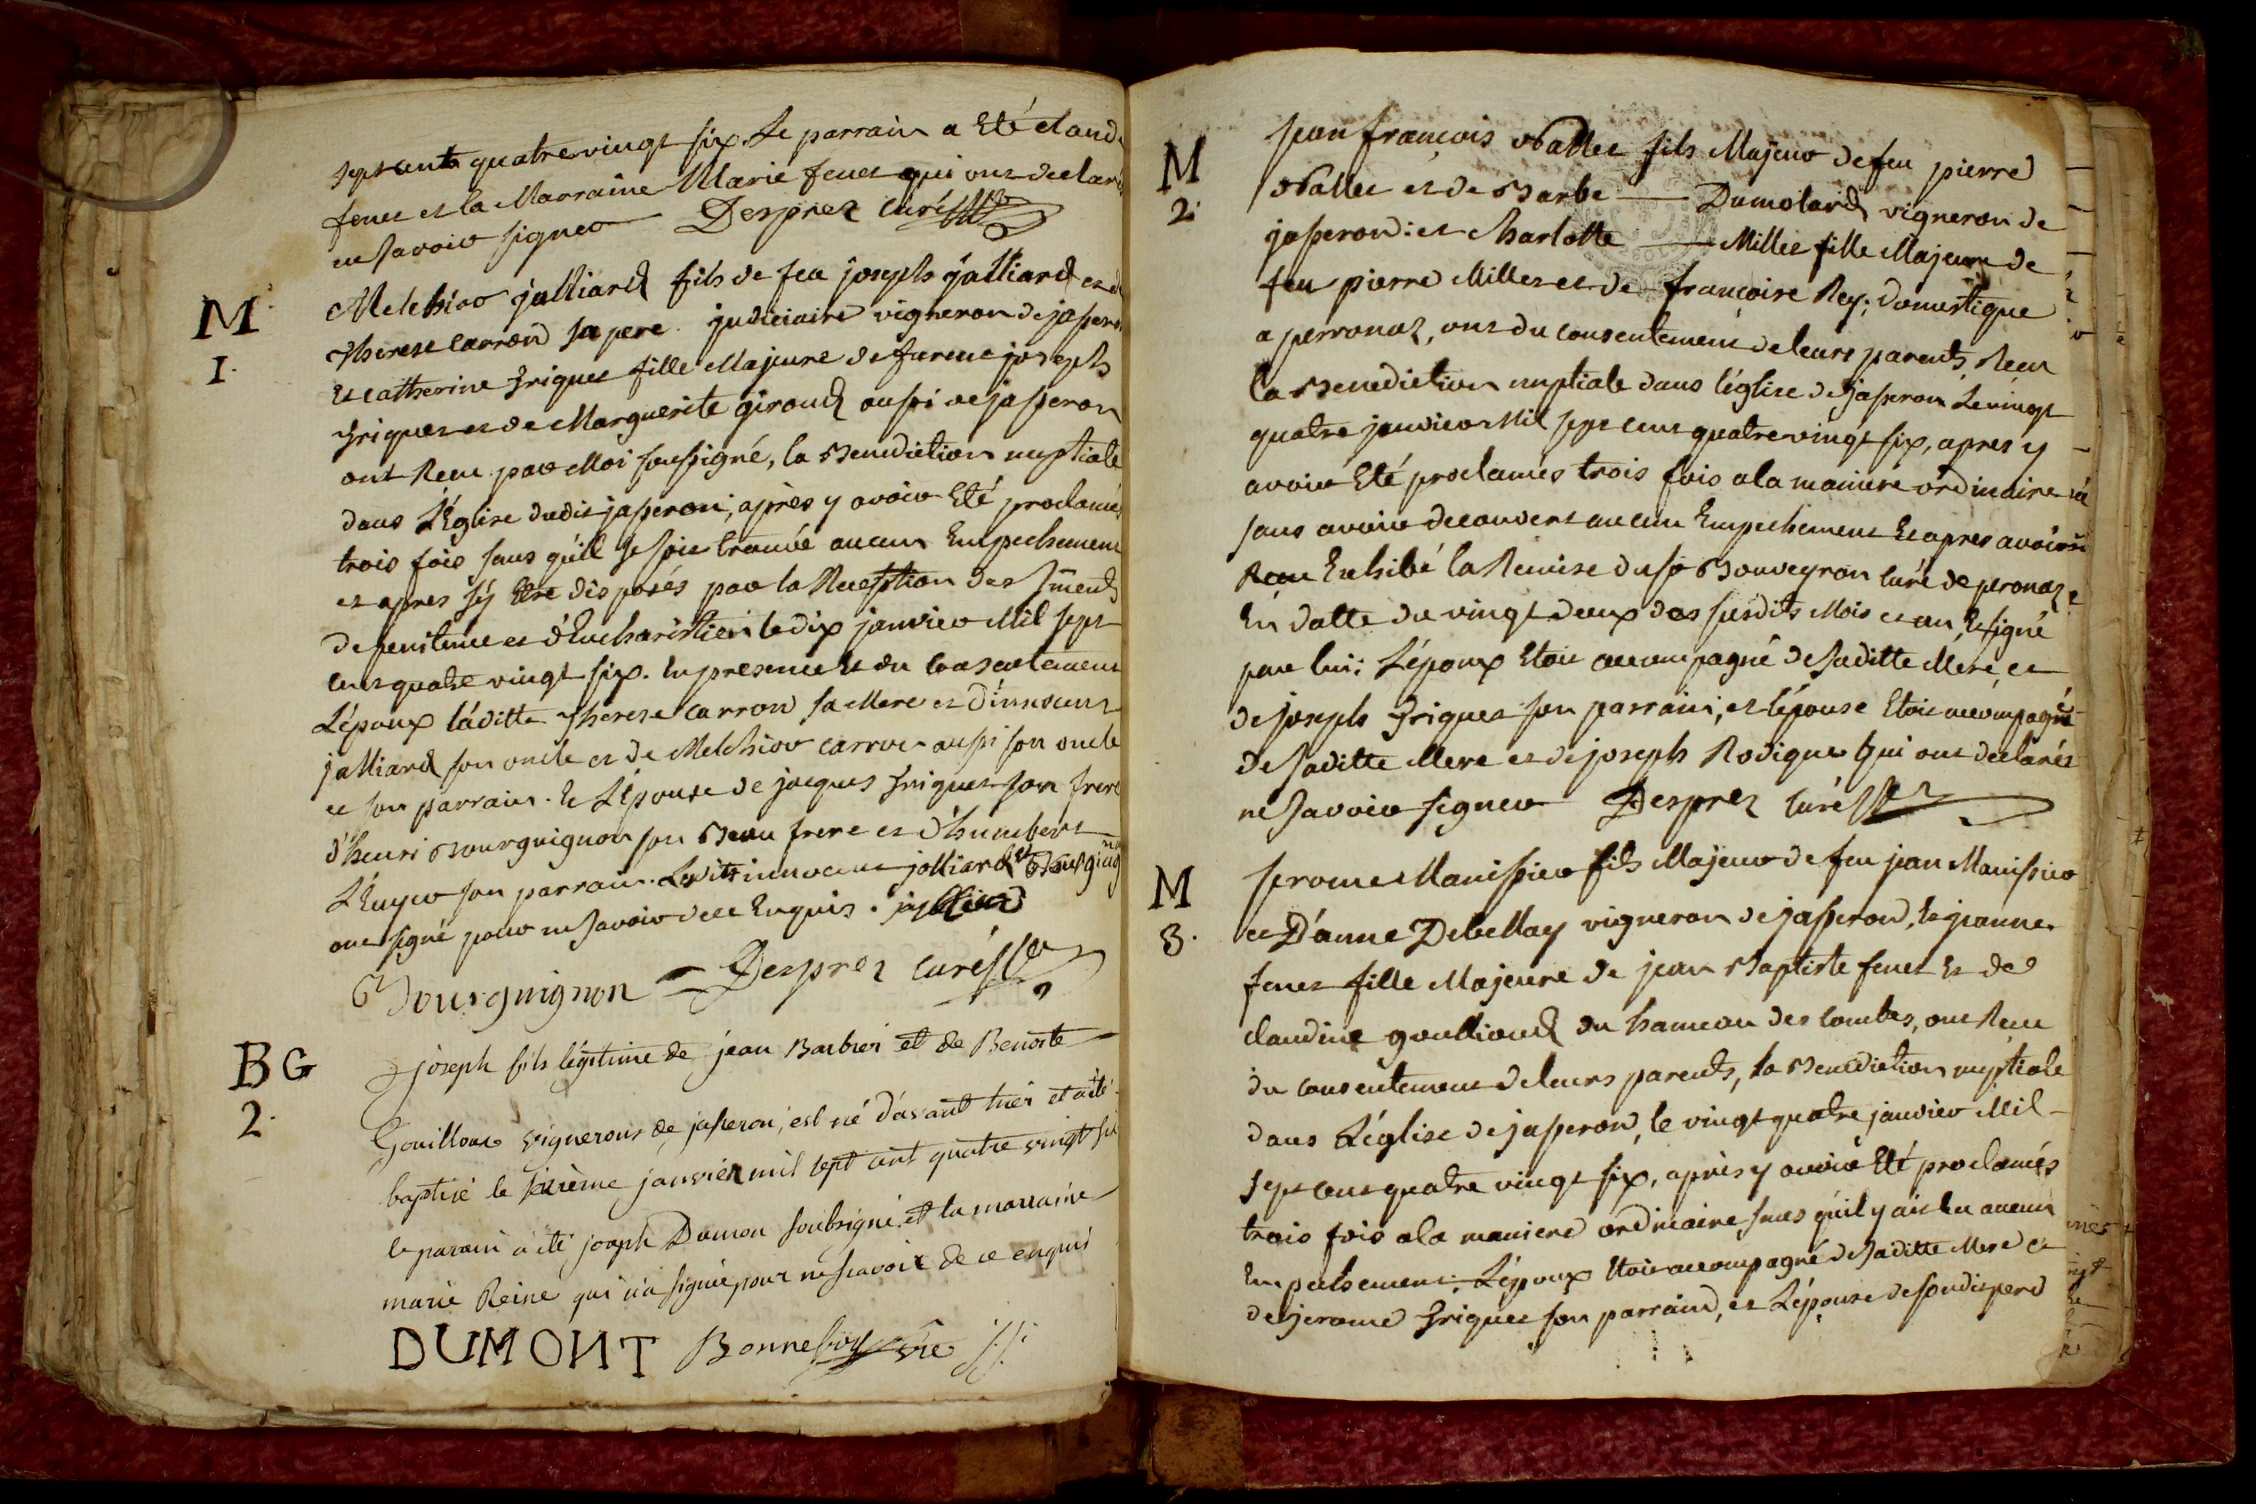 sept cents quatrevingt six. Le parrain a Eté claud
fenet et la Marraine Marie fenet qui ont declaré
ne savoir signer Desprez curé
M
1.
Melchior jalliard fils de feu joseph jalliard et d
Therese Carron sa pere judiciaire vigneron de jaseron
Et catherine friquet fille Majeure de furent joseph
friquet et de Marguerite giroud aussi de jasseron
ont Receu par Moi soussigné, la Benediction nuptiale
dans L'Eglise dudit jaseron, après y avoir Eté proclamés
trois fois sans quil se soit trouvée aucun Empechement
et apres s'y Etre disposés par la Reception des Sments
de penitence et d'Eucharistie: le dix janvier Mil sept
cent quatre vingt six. En presence Et du Consentement
L'époux laditte Therese Carron sa Mere et d'innocent
jalliard son oncle et de Melchior carron aussi son oncle
et son parrain. Et L'épouse de jacques friquet son frere
d'henri Bourguignon son Beau frere et d'humbert
son parrain. Lesdits innocent jolliard et Bourguig
ont signé pour ne savoir de ce Enquis. jalliard
Bourguignon Desprez curé
BG
2.
joseph fils légitime de jean Barbier et de Benoite
Gouilloux vignerons de jaseron, est né d'avant hier et a été
baptisé le seizième janvier mil sept cent quatre vingt six
le parain a été joseph Dumon soubsigné et la marraine
marie Reine qui n'a signée pour ne scavoir de ce enquis
DUMONT Bonnefoy vre
M
2.
jean françois vallet fils Majeur de feu pierre
vallet et de Barbe Dumolard vigneron de
jasseron: et Charlotte Millet fille Majeure de
feu pierre Millet et de francoise Rey; domestique
a perronaz, ont du consentement de leurs parents, Receu
la Benediction nuptiale dans l'église de jasseron Le vingt
quatre janvier Mil sept cent quatrevingt six, apres y
avoir Eté proclamés trois fois a la maniere ordinaire
sans avoir decouvert aucun Empechement Et apres avoir
Receu Exhibé la Remise du sr Bouveyron curé de peronaz
En datte du vingt deux des susdits Mois et an, Et signé
par lui: L'époux Etoit accompagné de saditte Mere, et
de joseph friquet son parrain, et l'épouse Etoit accompagné
de saditte Mere et de joseph Rodique qui ont declarés
ne savoir signer Desprez curé
M
3.
jerome Manissier fils Majeur de feu jean Manissier
et D'anne Debellay vigneron de jasseron, Et jeanne
fenet fille Majeure de jean Baptiste fenet Et de
claudine goullioud du hameau des combes, ont Receu
du consentement de leurs parents, la Benediction nuptiale
dans L'église de jasseron, le vingt quatre janvier Mil
sept cent quatre vingt six, après y avoir Eté proclamés
trois fois a la maniere ordinaire, sans qu'il y ait Eu aucun
Empechement: L'époux Etoit accompagné de saditte Mere et
de jerome friquet son parrain, et L'épouse de sondit pere